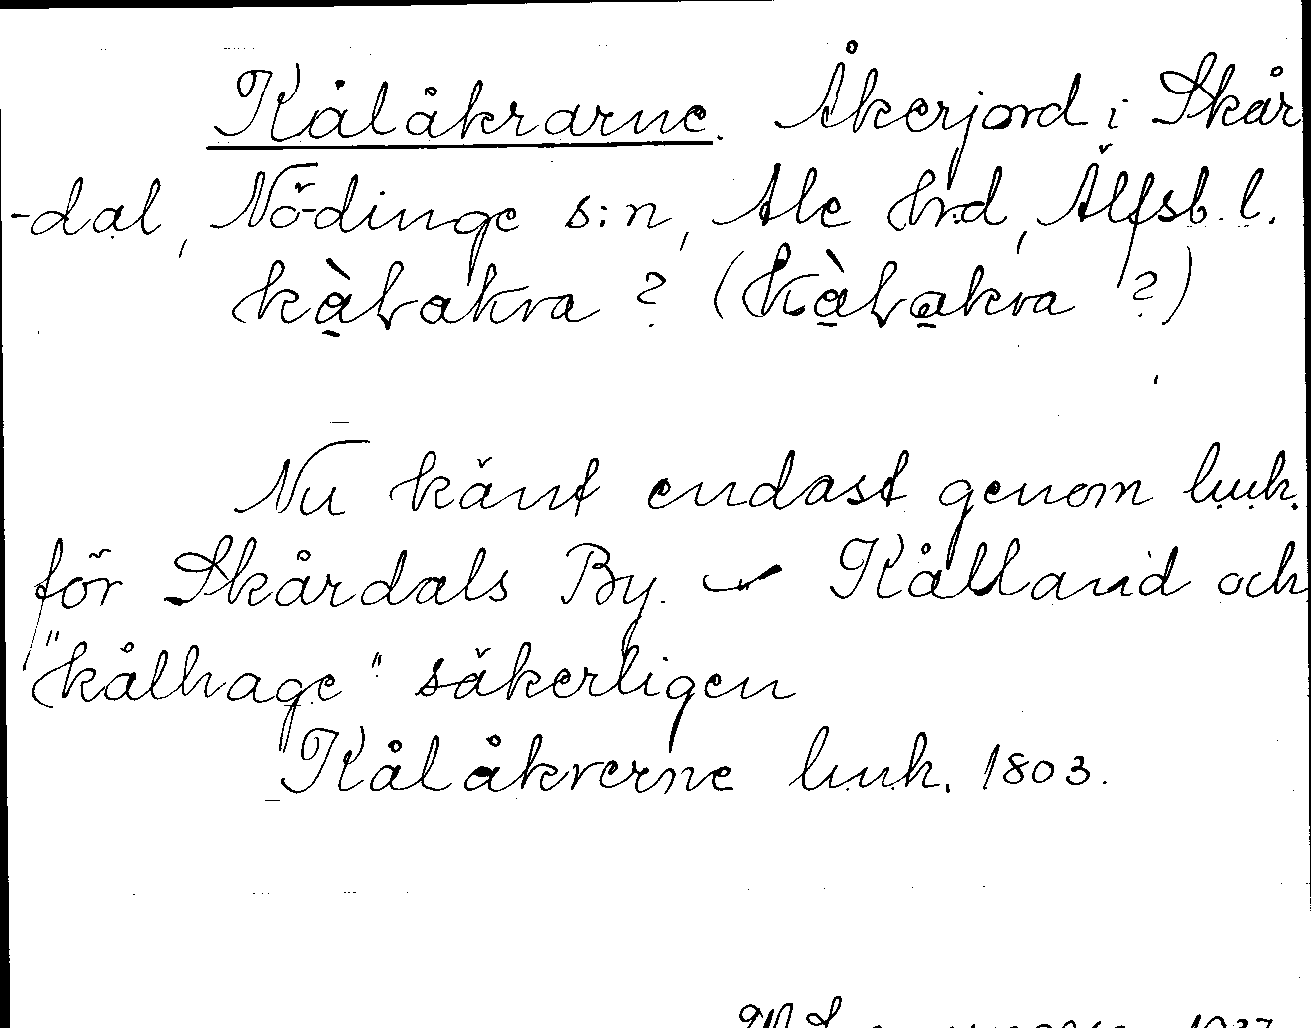 Kålåkrarne. Åkerjord i Skår
-dal, Nödinge s:n, Ale hrd, Älfsb. l.
kàlakra ? (kàlakra ?)
Nu känt endast genom l.u.h.
för Skårdals By. Kålland och
"kålhage" säkerligen
Kålåkrerne l.u.h. 1803.
1937